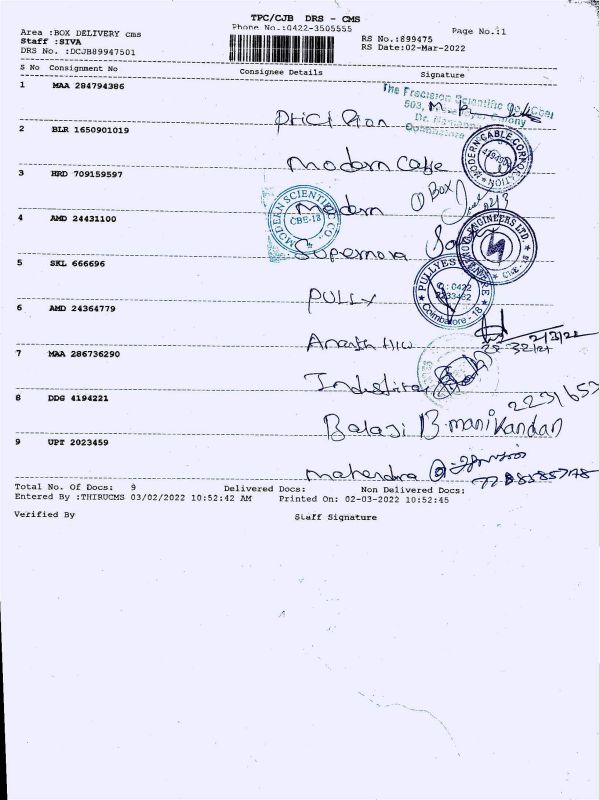 TPC/CJB DRS - CMS
Phone No.:0422-3505555
Page No.:1
Area :BOX DELIVERY cms
Staff :SIVA
DRS No. :DCJB89947501
RS No.:899475
RS Date:02-Mar-2022
S No Consignment No Consignee Details Signature
The Precision Scientific Co., Cbei
503,
Dr.
Coimbatore
1 MAA 284794386
2 BLR 1650901019
Modern Cable
MODERN CABLE CORPORATION
3 HRD 709159597
Modern ① Box
MODERN SCIENTIFIC CO.
CBE-18
4 AMD 24431100
Supernova
ENGINEERS LTD.
5 SKL 666696
PULLY
PULLYES
: 0422
Coimbatore - 18
6 AMD 24364779
Ananth H/w
7 MAA 286736290
Industrial
8 DDG 4194221
Balaji B. manikandan
9 UPT 2023459
Mahendra
Total No. Of Docs: 9 Delivered Docs: Non Delivered Docs:
Entered By :THIRUCMS 03/02/2022 10:52:42 AM Printed On: 02-03-2022 10:52:45
Verified By Staff Signature